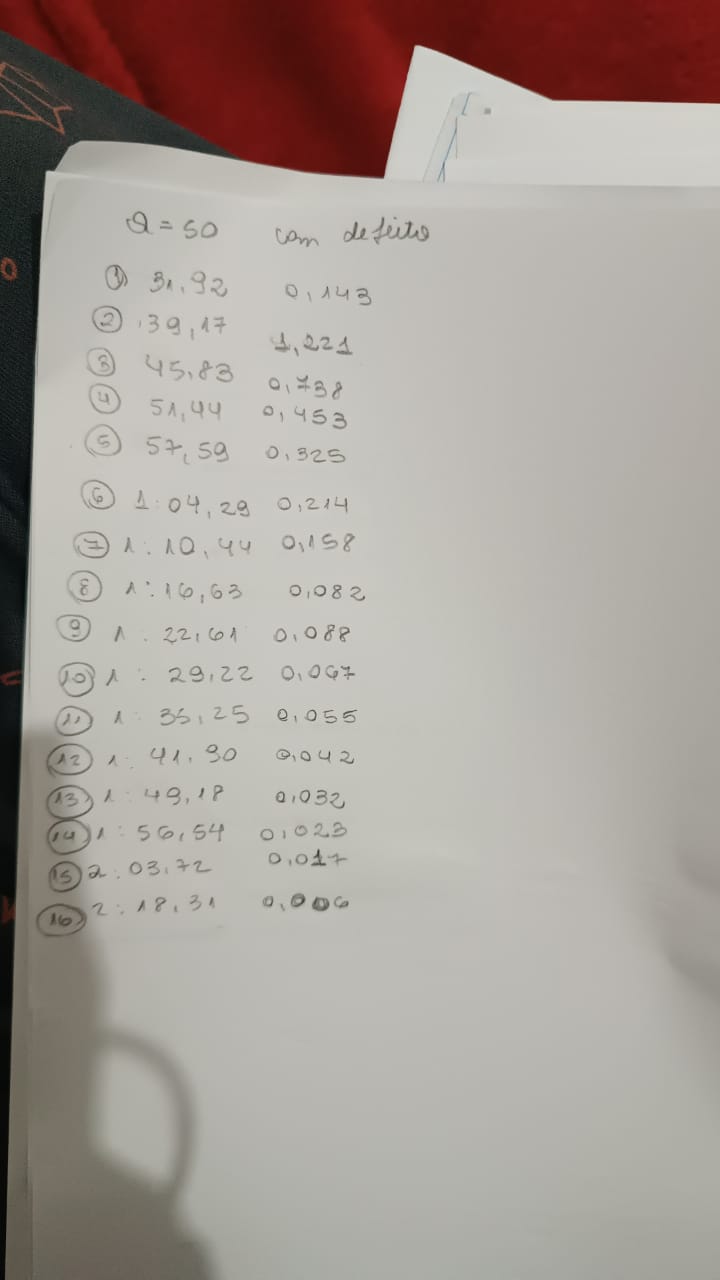 Q = 50 com defeito
1 31,92 0,143
2 39,17 1,221
3 45,83 0,738
4 51,44 0,453
5 57,59 0,325
6 1:04,29 0,214
7 1:10,44 0,158
8 1:16,63 0,082
9 1:22,61 0,088
10 1:29,22 0,067
11 1:35,25 0,055
12 1:41,90 0,042
13 1:49,18 0,032
14 1:56,54 0,023
15 2:03,72 0,017
16 2:18,31 0,006